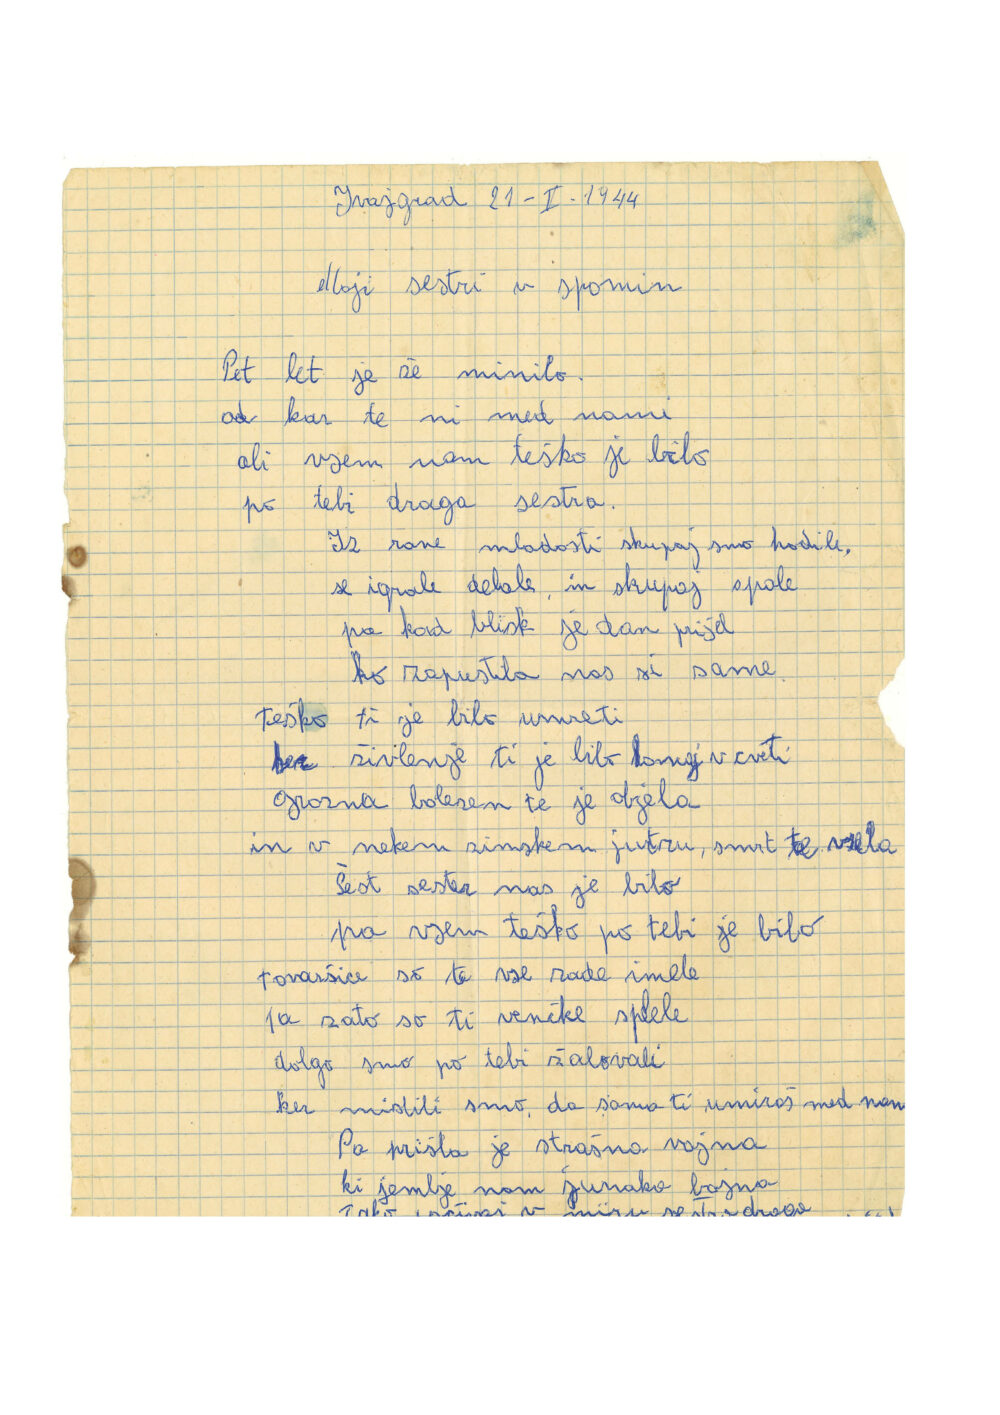 Ivajgrad 21-I-1944
Moji sestri v spomin
Pet let je že minilo.
od kar te ni med nami
ali vsem nam teško je bilo
po tebi draga sestra.
Iz rane mladosti skupaj smo hodile,
se igrale delale, in skupaj spale
pa kod blisk je dan prišel
ko zapustila nas si same.
teško ti je bilo umreti
ker živlenje ti je bilo komaj v cveti
Grozna bolezen te je objela
in v nekem zimskem jutru, smrt te vzela
Šest sester nas je bilo
pa vsem teško po tebi je bilo
tovaršice so te vse rade imele
pa zato so ti venčke splele
dolgo smo po tebi žalovali
ker mislili smo, da sama ti umiraš med nam
Pa prišla je strašna vojna
ki jemlje nam junake bojna
Tako počivaj v miru sestra draga